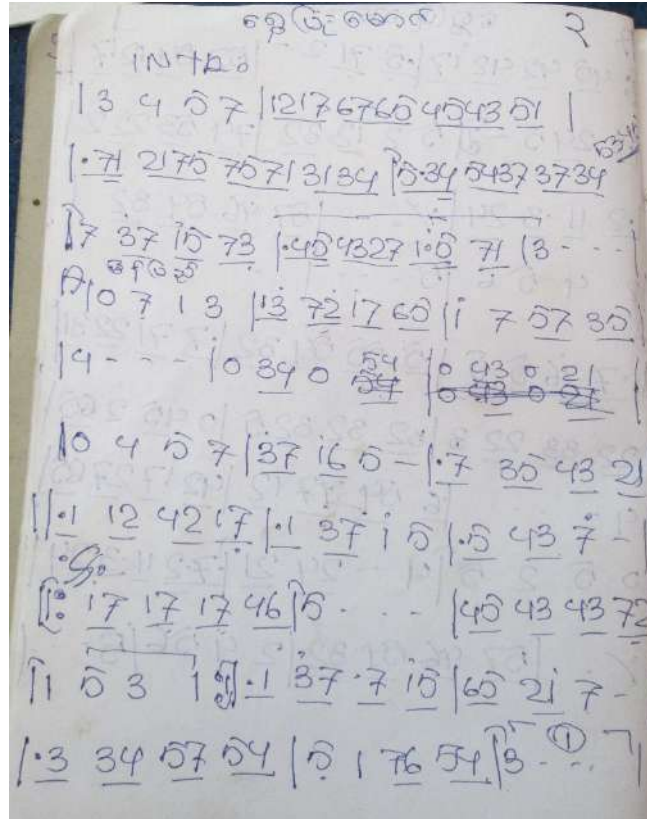 ရွှေပြည်မောင် ၃
INTRO
| 3 4 5 7 | 1217 6765 4543 51 |
| .71 2175 757 | 3134 | 5.34 5437 3734 5345
| 7 37 15 73 | .45 4327 1.5 71 | 3 - - - |
A | 0 7 1 3 | 13 72 17 65 | 1 7 57 35 |
| 4 - - - | 0 34 0 54 | 0 43 0 21 |
| 0 4 5 7 | 37 16 5 - | .7 35 43 21
|| .1 12 42 17 | .1 37 1 5 | .5 43 7 -
17 17 17 46 | 5 - - - | 45 43 43 72
| 1 5 3 1 :|| .1 37 .7 15 | 65 21 7 -
| .3 34 57 54 | 5 1 76 54 | 3 - - - ① |